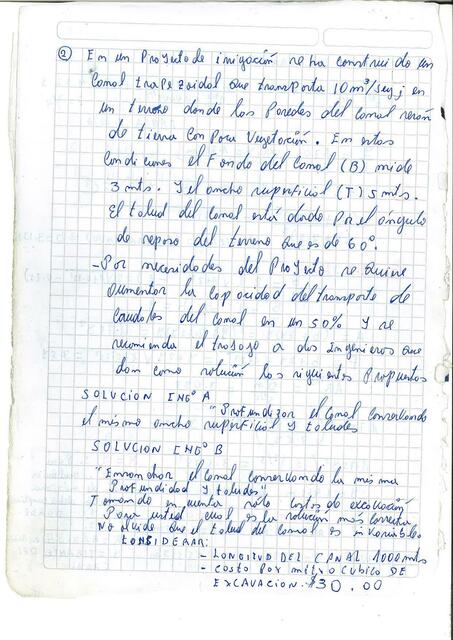 ② En un Proyecto de irrigación se ha construido un
Canal trapezoidal que transporta 10 m³/seg; en
un terreno donde las Paredes del Canal serán
de tierra con Poca Vegetación. En estas
Condiciones el Fondo del Canal (B) mide
3 mts. Y el ancho superficial (T) 5 mts.
El talud del Canal está dado Por el ángulo
de reposo del terreno que es de 60°.
- Por necesidades del Proyecto se quiere
aumentar la capacidad del transporte de
Caudales del Canal en un 50% Y se
recomienda el trabajo a dos Ingenieros que
dan como solución las siguientes Propuestas
SOLUCION ING° A
"Profundizar el Canal conservando
el mismo ancho superficial Y taludes
SOLUCION ING° B
"Ensanchar el Canal conservando la misma
Profundidad Y taludes"
Tomando en cuenta sólo costos de excavación
Para usted cual es la solución más correcta
No olvide que el talud del canal es invariable.
CONSIDERAR:
- LONGITUD DEL CANAL 1000mts
- COSTO POR METRO CUBICO DE
EXCAVACION. $30.00